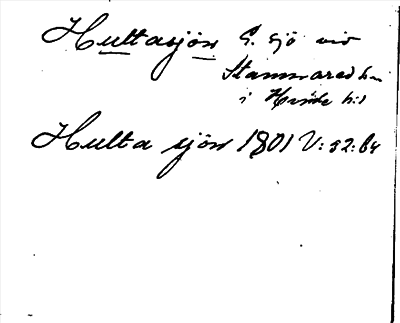 Hultasjön G. sjö vid
Stamnared
i Himle hd
Hulta sjön 1801 V:52:64